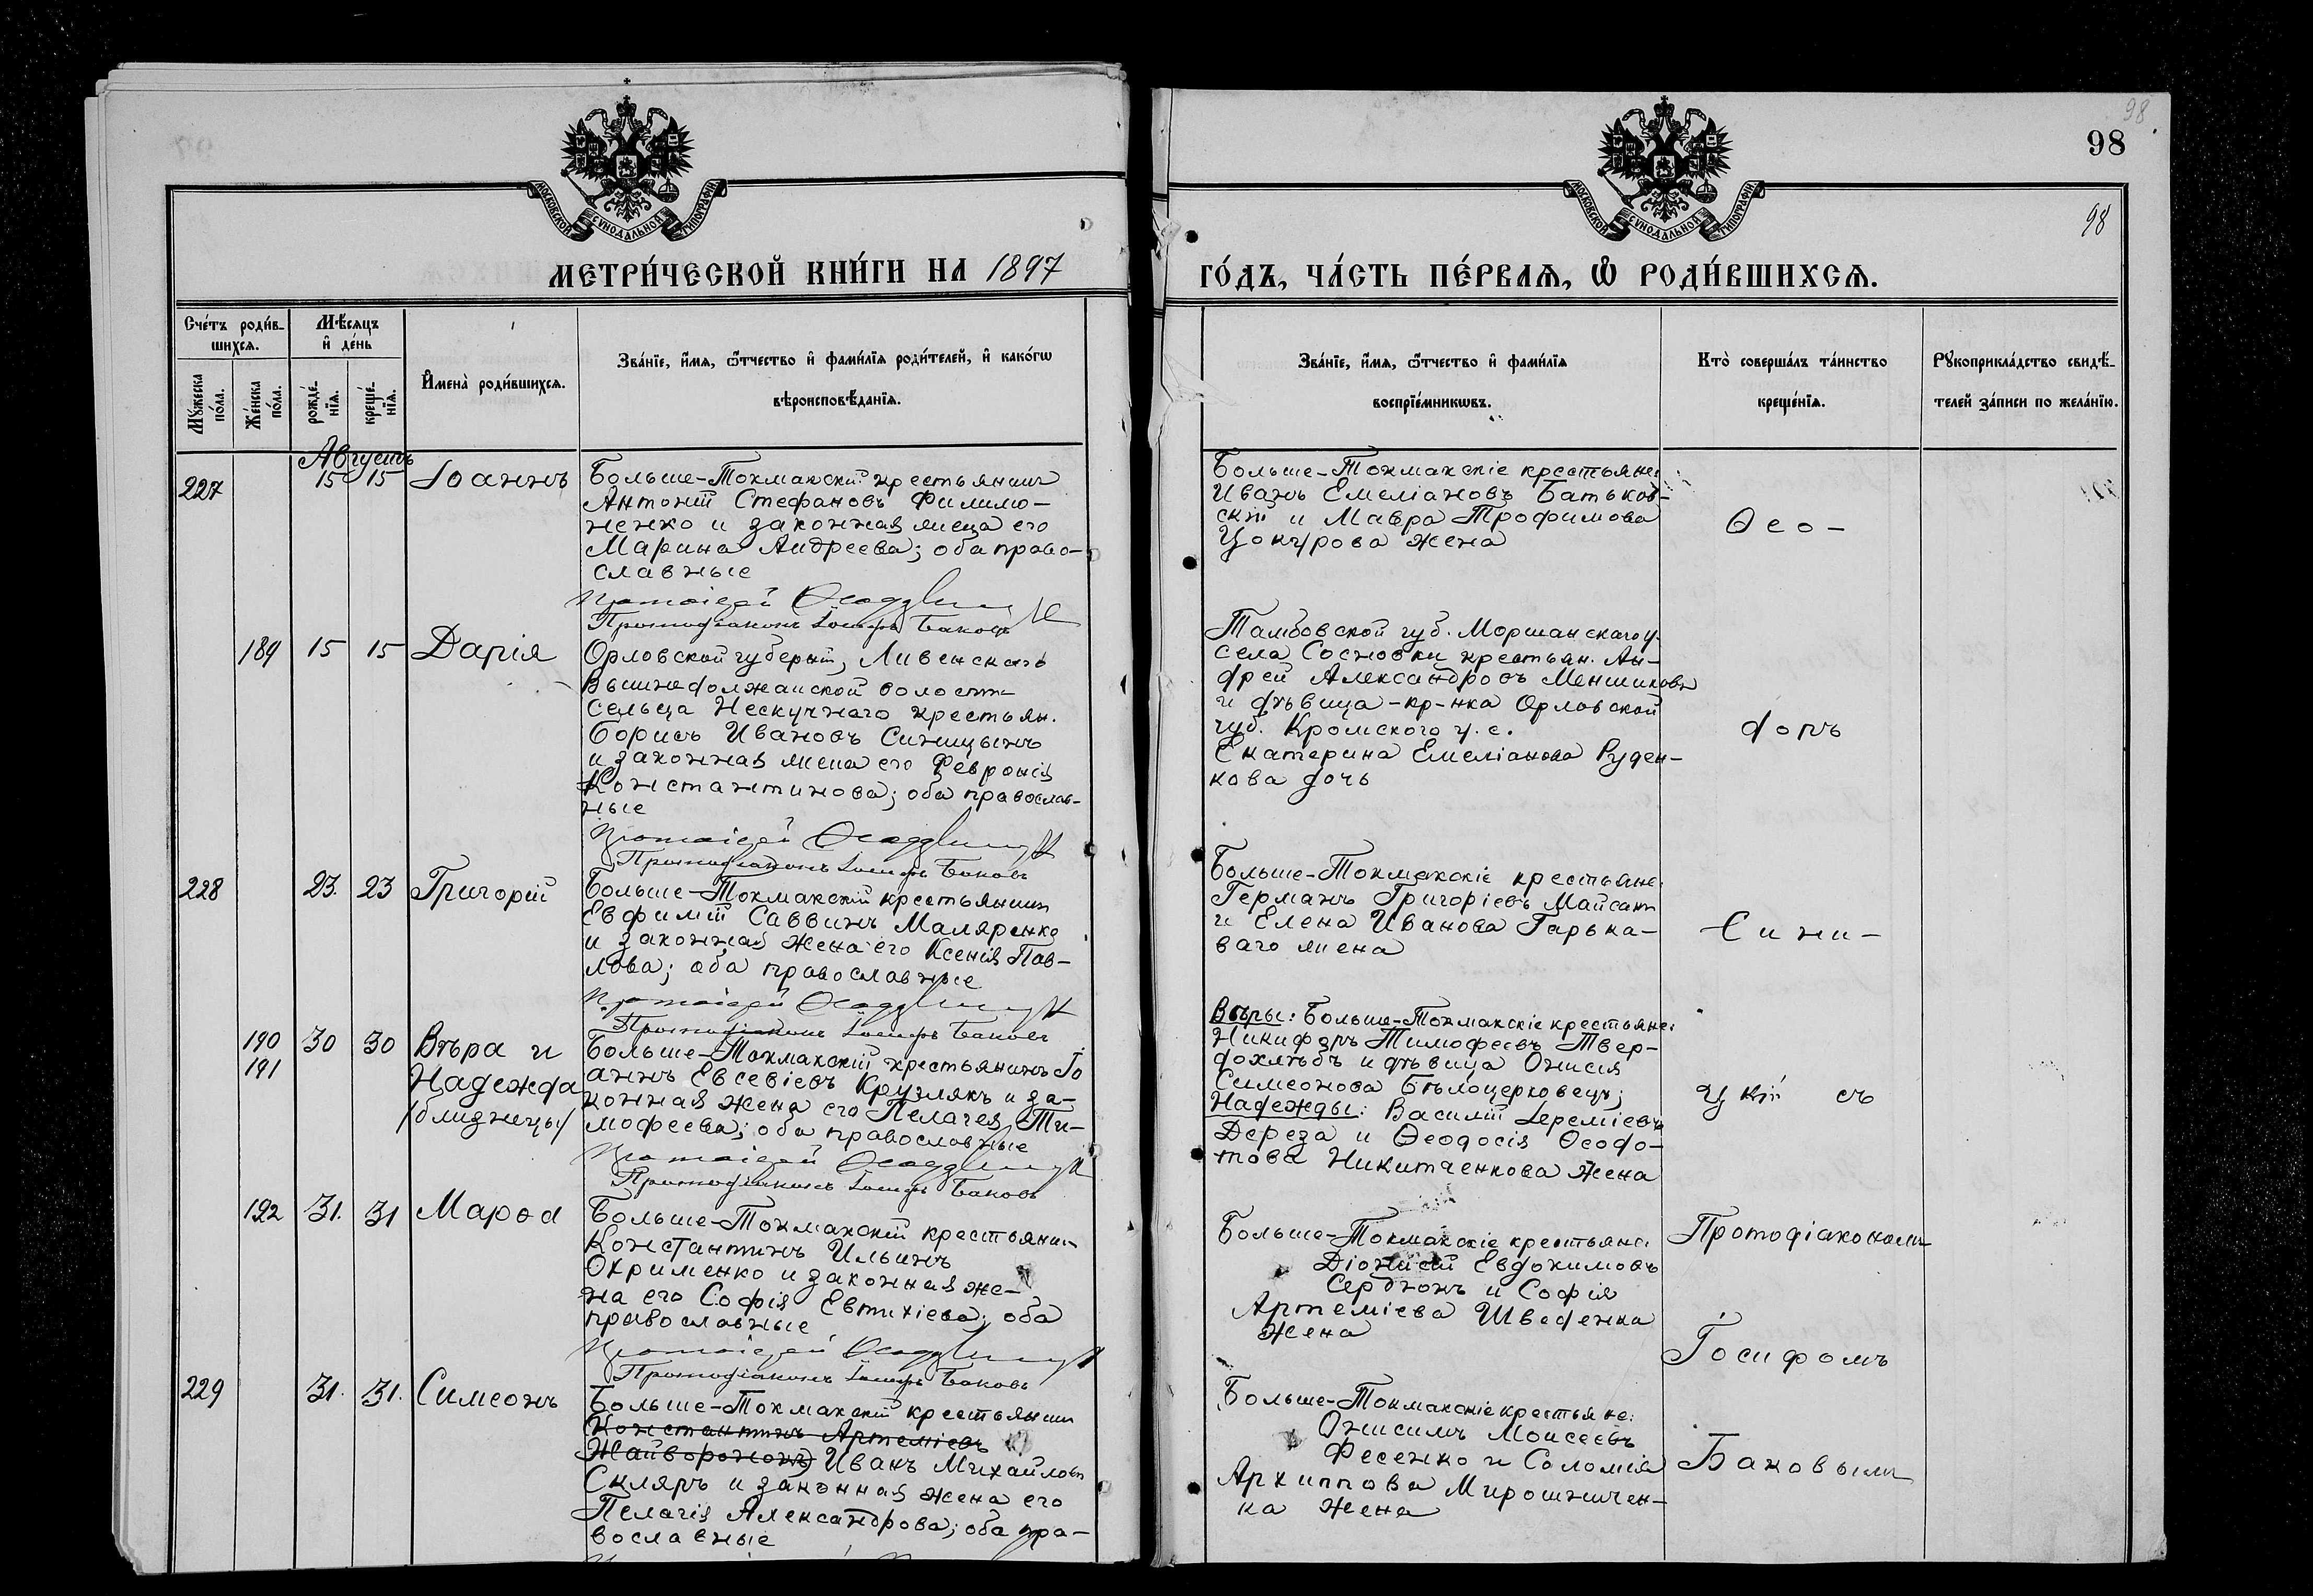 98
98
98
МОСКОВСКОЙ СѴНОДАЛЬНОЙ ТИПОГРАФІИ
МЕТРИ́ЧЕСКОЙ КНИ́ГИ НА 1897
МОСКОВСКОЙ СѴНОДАЛЬНОЙ ТИПОГРАФІИ
ГО́ДЪ, ЧА́СТЬ ПЕ́РВАѦ, Ѿ РОДИ́ВШИХСѦ.
Сче́тъ роди́в-
шихсѧ.
Мѣ́сѧцъ
и҆ де́нь
Мꙋжеска
по́ла.
Же́нска
по́ла.
рожде́-
нїѧ.
креще́-
нїѧ.
И҆мена̀ роди́вшихсѧ.
Зва́нїе, и҆́мѧ, ѻ҆́тчество и҆ фами́лїѧ роди́телей, и҆ како́гѡ
вѣроисповѣ́данїѧ.
Зва́нїе, и҆́мѧ, ѻ҆́тчество и҆ фами́лїѧ
воспрїе́мникѡвъ.
Кто̀ соверша́лъ та́инство
креще́нїѧ.
Рꙋкоприкла́дство свидѣ́-
телей за́писи по жела́нїю.
Августъ
227
15 15
Іоаннъ
Больше-Токмакскій крестьянинъ
Антоній Стефановъ Филимо-
ненко и законная жена его
Марина Андреева; оба право-
славные
Протоіерей
Протодіаконъ Іосифъ Баковъ
Больше-Токмакскіе крестьяне:
Иванъ Емеліановъ Батьков-
скій и Мавра Трофимова
Цокурова жена
Ѳео-
189 15 15
Дарія
Орловской губерніи, Ливенскаго
Вышнедолжанской волости
сельца Нескучнаго крестьян.
Борисъ Ивановъ Синицынъ
и законная жена его Февронія
Константинова; оба православ-
ные
Протоіерей
Протодіаконъ Іосифъ Баковъ
Тамбовской губ. Моршанскаго у.
села Сосновки крестьян. Ан-
дрей Александровъ Меншиковъ
и дѣвица-кр-нка Орловской
губ. Кромского у. с.
Екатерина Емеліанова Руден-
кова дочь
доръ
228
23. 23
Григорій
Больше-Токмакскій крестьянинъ
Евфимій Саввинъ Маляренко
и законная жена его Ксенія Пав-
лова; оба православные
Протоіерей
Протодіаконъ Іосифъ Баковъ
Больше-Токмакскіе крестьяне:
Германъ Григоріевъ Майсакъ
и Елена Иванова Гарька-
ваго жена
Сини-
190
191
30 30
Вѣра и
Надежда
/близнецы/
Больше-Токмакскій крестьянинъ Іо
аннъ Евсевіевъ Круглякъ и за-
конная жена его Пелагея Ти-
мофеева; оба православные
Протоіерей
Протодіаконъ Іосифъ Баковъ
Вѣры: Больше-Токмакскіе крестьяне:
Никифоръ Тимофеевъ Твер-
дохлѣбъ и дѣвица Онисія
Симеонова Бѣлоцерковецъ;
Надежды: Василій Іереміевъ
Дереза и Ѳеодосія Ѳеодо-
това Никитченкова жена
цкій съ
192 31. 31
Марѳа
Больше-Токмакскій крестьянинъ
Константинъ Ильинъ
Охрименко и законная же-
на его Софія Евтихіева; оба
православные
Протоіерей
Протодіаконъ Іосифъ Баковъ
Больше-Токмакскіе крестьяне:
Діонисій Евдокимовъ
Сердюкъ и Софія
Артеміева Шведенка
жена
Протодіакономъ
Іосифомъ
229
31. 31.
Симеонъ
Больше-Токмакскій крестьянинъ
Константинъ Артеміевъ
Жайворонокъ Иванъ Михайловъ
Скляръ и законная жена его
Пелагія Александрова; оба пра-
вославные
Больше-Токмакскіе крестьяне:
Онисимъ Моисеевъ
Фесенко и Соломія
Архиппова Мирошничен-
ка жена
Баковымъ